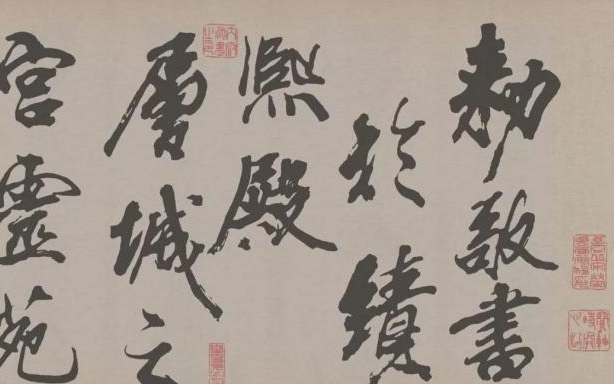 勑敬書
於績
熙殿
層城之
宮靈苑